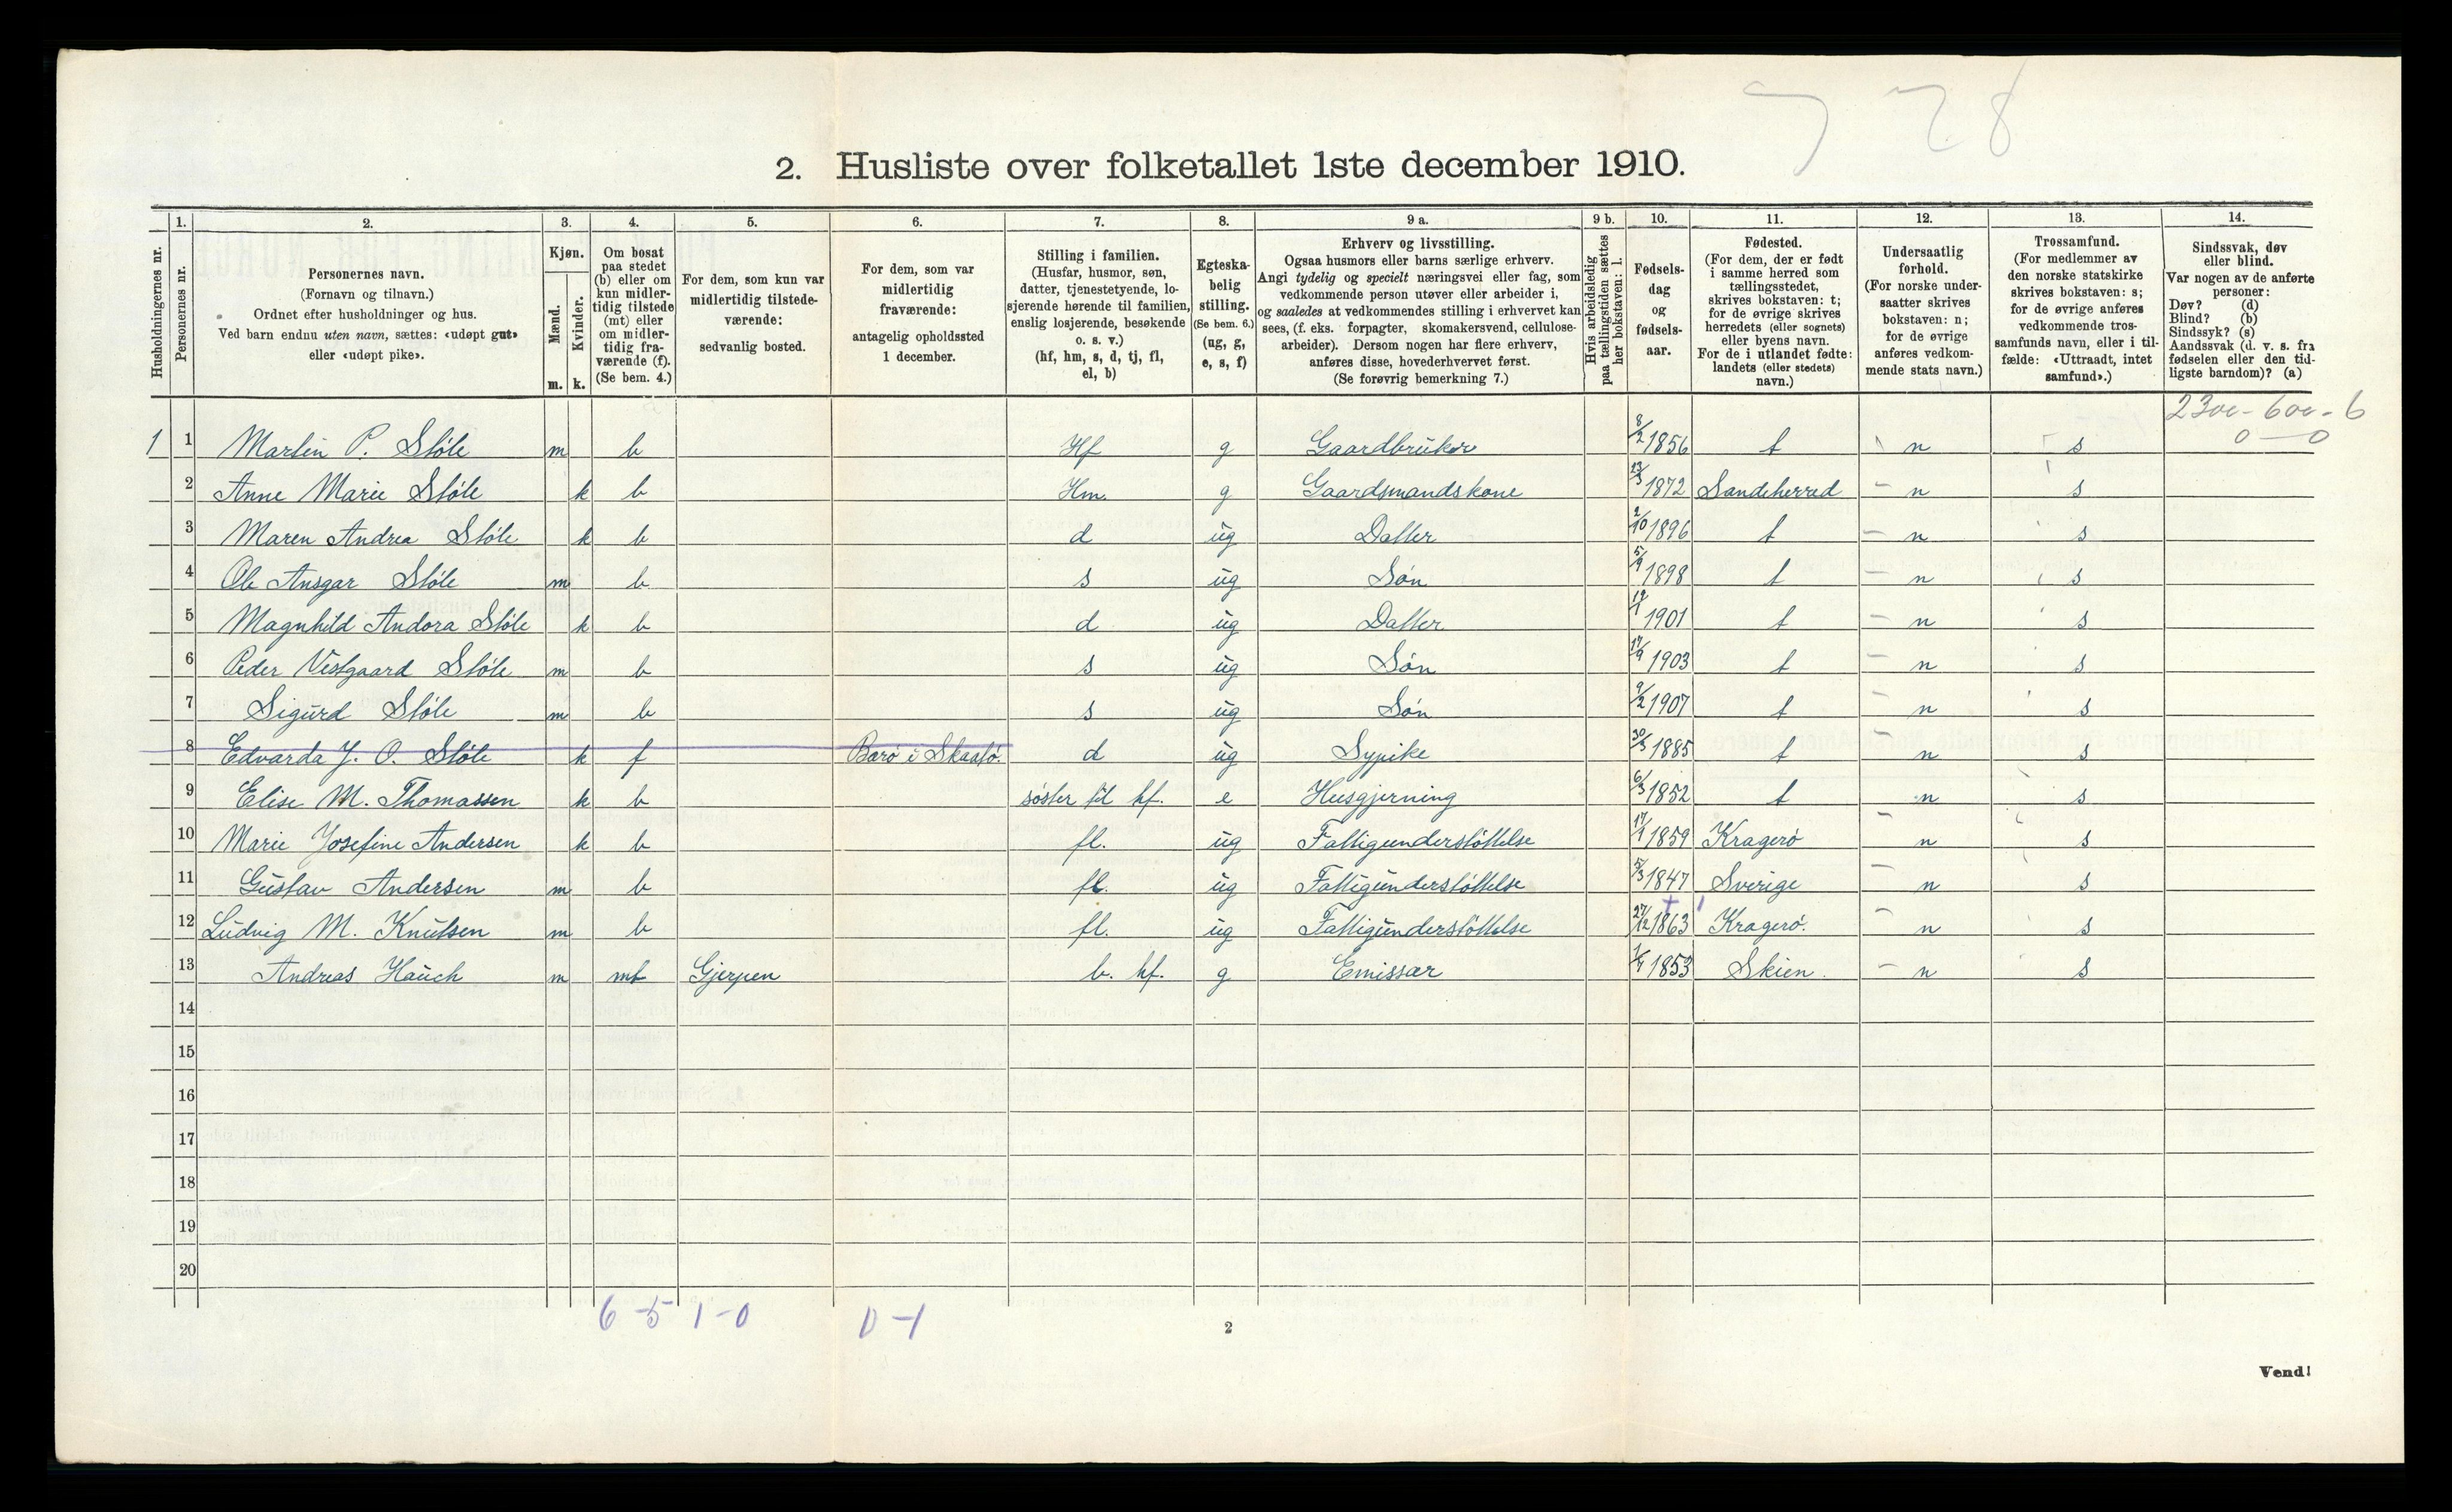 7 28
2. Husliste over folketallet 1ste december 1910.
Husholdningernes nr.
1. Personernes nr.
2. Personernes navn. (Fornavn og tilnavn.) Ordnet efter husholdninger og hus. Ved barn endnu uten navn, sættes: «udøpt gut» eller «udøpt pike».
3. Kjøn. Mænd. m. Kvinder. k.
4. Om bosat paa stedet (b) eller om kun midlertidig tilstede (mt) eller om midlertidig fraværende (f). (Se bem. 4.)
5. For dem, som kun var midlertidig tilstedeværende: sedvanlig bosted.
6. For dem, som var midlertidig fraværende: antagelig opholdssted 1 december.
7. Stilling i familien. (Husfar, husmor, søn, datter, tjenestetyende, losjerende hørende til familien, enslig losjerende, besøkende o. s. v.) (hf, hm, s, d, tj, fl, el, b)
8. Egteskabelig stilling. (Se bem. 6.) (ug, g, e, s, f)
9 a. Erhverv og livsstilling. Ogsaa husmors eller barns særlige erhverv. Angi tydelig og specielt næringsvei eller fag, som vedkommende person utøver eller arbeider i, og saaledes at vedkommendes stilling i erhvervet kan sees, (f. eks. forpagter, skomakersvend, cellulosearbeider). Dersom nogen har flere erhverv, anføres disse, hovederhvervet først. (Se forøvrig bemerkning 7.)
9 b. Hvis arbeidsledig paa tællingstiden sættes her bokstaven: l.
10. Fødselsdag og fødselsaar.
11. Fødested. (For dem, der er født i samme herred som tællingsstedet, skrives bokstaven: t; for de øvrige skrives herredets (eller sognets) eller byens navn. For de i utlandet fødte: landets (eller stedets) navn.)
12. Undersaatlig forhold. (For norske undersaatter skrives bokstaven: n; for de øvrige anføres vedkommende stats navn.)
13. Trossamfund. (For medlemmer av den norske statskirke skrives bokstaven: s; for de øvrige anføres vedkommende trossamfunds navn, eller i tilfælde: «Uttraadt, intet samfund».)
14. Sindssvak, døv eller blind. Var nogen av de anførte personer: Døv? (d) Blind? (b) Sindssyk? (s) Aandssvak (d. v. s. fra fødselen eller den tidligste barndom)? (a)
2300 - 600 - 6
0 — 0
1 1 Martin P. Støle m b Hf g Gaardbruker 8/2 1856 t n s
2 Anne Marie Støle k b Hm. g Gaardsmandskone 13/3 1872 Sandeherred n s
3 Maren Andrea Støle k b d ug Datter 2/10 1896 t n s
4 Ole Ansgar Støle m b s ug Søn 5/9 1898 t n s
5 Magnhild Andora Støle k b d ug Datter 1901 t n s
6 Peder Vestgaard Støle m b s ug Søn 17/9 1903 t n s
7 Sigurd Støle m b s ug Søn 9/2 1907 t n s
8 Edvarda J. O. Støle k f Barø i Skaatø. d ug Sypike 30/3 1885 t n s
9 Elise M. Thomassen k b søster til hf. e Husgjerning 6/3 1852 t n s
10 Marie Josefine Andersen k b fl. ug Fattigunderstøttelse 1859 Kragerø n s
11 Gustav Andersen m b fl. ug Fattigunderstøttelse 5/3 1847 Sverige n s
12 Ludvig M. Knutsen m b fl. ug Fattigunderstøttelse 27/12 1863 Kragerø. n s
13 Andreas Hauch m mt Gjerpen b. hf. g Emissær 1853 Skien. n s
14
15
16
17
18
19
20
6 - 5 1 - 0 0 - 1
2
Vend!